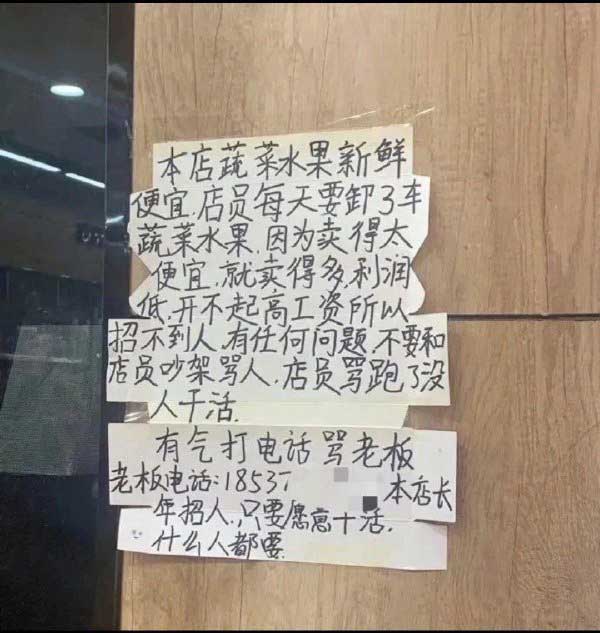 本店蔬菜水果新鲜
便宜.店员每天要卸3车
蔬菜水果.因为卖得太
便宜.就卖得多,利润
低.开不起高工资所以
招不到人.有任何问题.不要和
店员吵架骂人.店员骂跑了没
人干活.
有气打电话骂老板
老板电话:18537 本店长
年招人.只要愿意干活.
什么人都要.